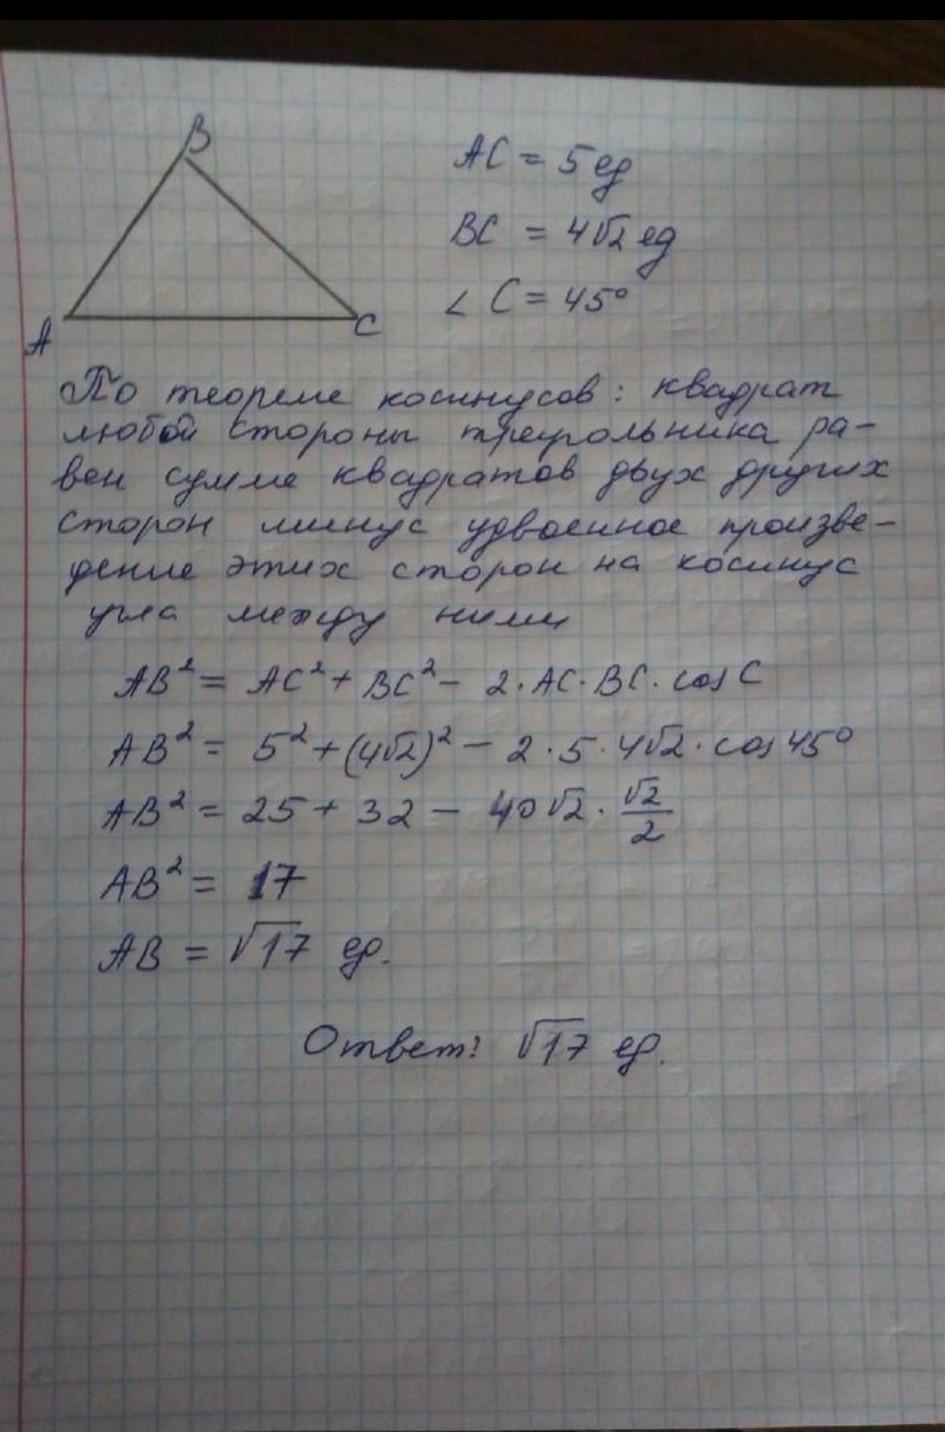 B
A
C
AC = 5 ед
BC = 4√2 ед
∠ C = 45°
По теореме косинусов: квадрат
любой стороны треугольника ра-
вен сумме квадратов двух других
сторон минус удвоенное произве-
дение этих сторон на косинус
угла между ними
AB² = AC² + BC² - 2·AC·BC·cos C
AB² = 5² + (4√2)² - 2·5·4√2·cos 45°
AB² = 25 + 32 - 40√2·√2/2
AB² = 17
AB = √17 ед.
Ответ: √17 ед.